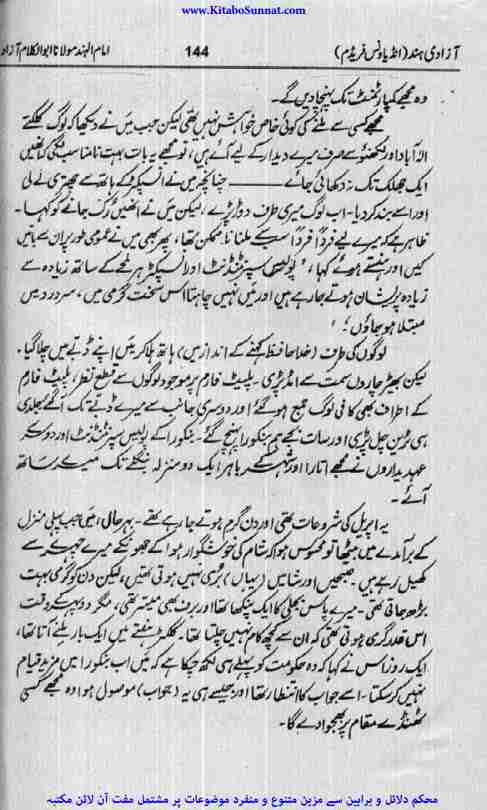 www.KitaboSunnat.com
آزادی ہند (انڈیا ونس فریڈم)
144
امام الہند مولانا ابوالکلام آزاد
وہ مجھے کمپارٹمنٹ تک پہنچا دیں گے۔
مجھے کسی سے ملنے کی کوئی خاص خواہش نہیں تھی لیکن جب میں نے دیکھا کہ لوگ کلکتے
الہ آباد اور لکھنؤ سے صرف میرے دیدار کے لیے آئے ہیں، تو مجھے یہ بات بہت نامناسب لگی کہ انھیں
ایک جھلک تک نہ دکھائی جائے ——— چنانچہ میں نے انسپکٹر کے ہاتھ سے چھتری لے لی
اور اسے بند کر دیا۔ اب لوگ میری طرف دوڑ پڑے، لیکن میں نے انھیں رک جانے کو کہا۔
ظاہر ہے کہ میرے لیے فرداً فرداً سب سے ملنا ناممکن تھا، پھر بھی میں نے عمومی طور پر ان سے باتیں
کیں اور ہنستے ہوئے کہا، 'پولیس سپرنٹنڈنٹ اور انسپکٹر ہر لمحے کے ساتھ زیادہ سے
زیادہ پریشان ہوتے جا رہے ہیں اور میں نہیں چاہتا اس سخت گرمی میں، سر درد میں
مبتلا ہو جاؤں؛'
لوگوں کی طرف (خدا حافظ کہنے کے انداز میں) ہاتھ ہلا کر میں اپنے ڈبے میں چلا گیا۔
لیکن بھیڑ چاروں سمت سے امڈ پڑی۔ پلیٹ فارم پر موجود لوگوں سے قطع نظر، پلیٹ فارم
کے اطراف بھی کافی لوگ جمع ہو گئے اور دوسری جانب سے میرے ڈبے تک آ گئے جلدی
ہی ٹرین چل پڑی اور سات بجے ہم بنکورا پہنچ گئے۔ بنکورا کے پولیس سپرنٹنڈنٹ اور دوسرے
عہدیداروں نے مجھے اتارا اور شہر کے باہر ایک دو منزلہ بنگلے تک میرے ساتھ
آئے۔
یہ اپریل کی شروعات تھی اور دن گرم ہوتے جا رہے تھے۔ بہر حال، میں جب پہلی منزل
کے برآمدے میں بیٹھا تو محسوس ہوا کہ شام کی خوشگوار ہوا کے جھونکے میرے چہرے سے
کھیل رہے ہیں۔ صبحیں اور شامیں (یہاں) بری نہیں ہوتی تھیں، لیکن دن کو گرمی بہت
بڑھ جاتی تھی۔ میرے پاس بجلی کا ایک پنکھا تھا اور برف بھی میسر تھی، مگر دوپہر کے وقت
اس قدر گرمی ہوتی تھی کہ ان سے کچھ کام نہیں چلتا تھا۔ کلکٹر ہفتے میں ایک بار ملنے آتا تھا،
ایک روز اس نے کہا کہ وہ حکومت کو پہلے ہی لکھ چکا ہے کہ میں اب بنکورا میں مزید قیام
نہیں کر سکتا۔ اسے جواب کا انتظار تھا اور جیسے ہی یہ (جواب) موصول ہوا وہ مجھے کسی
ٹھنڈے مقام پر بھجوا دے گا۔
محکم دلائل و براہین سے مزین متنوع و منفرد موضوعات پر مشتمل مفت آن لائن مکتبہ